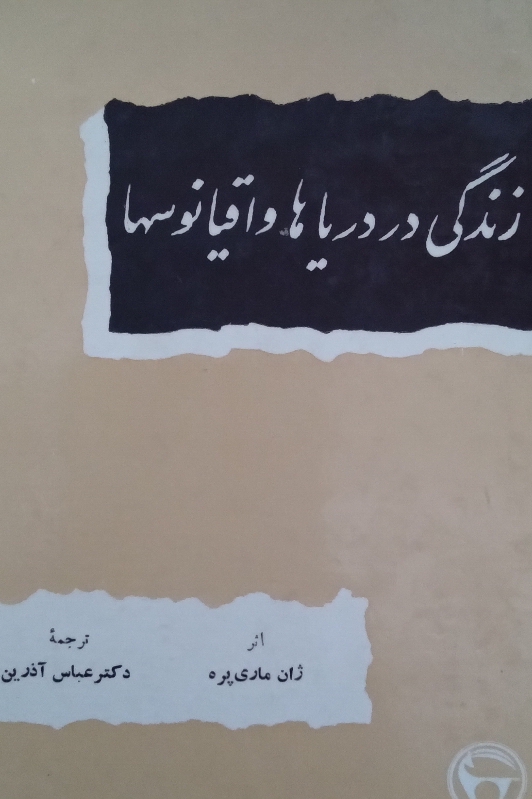 زندگی در دریاها و اقیانوسها
اثر
ژان ماری پره
ترجمهٔ
دکتر عباس آذرین